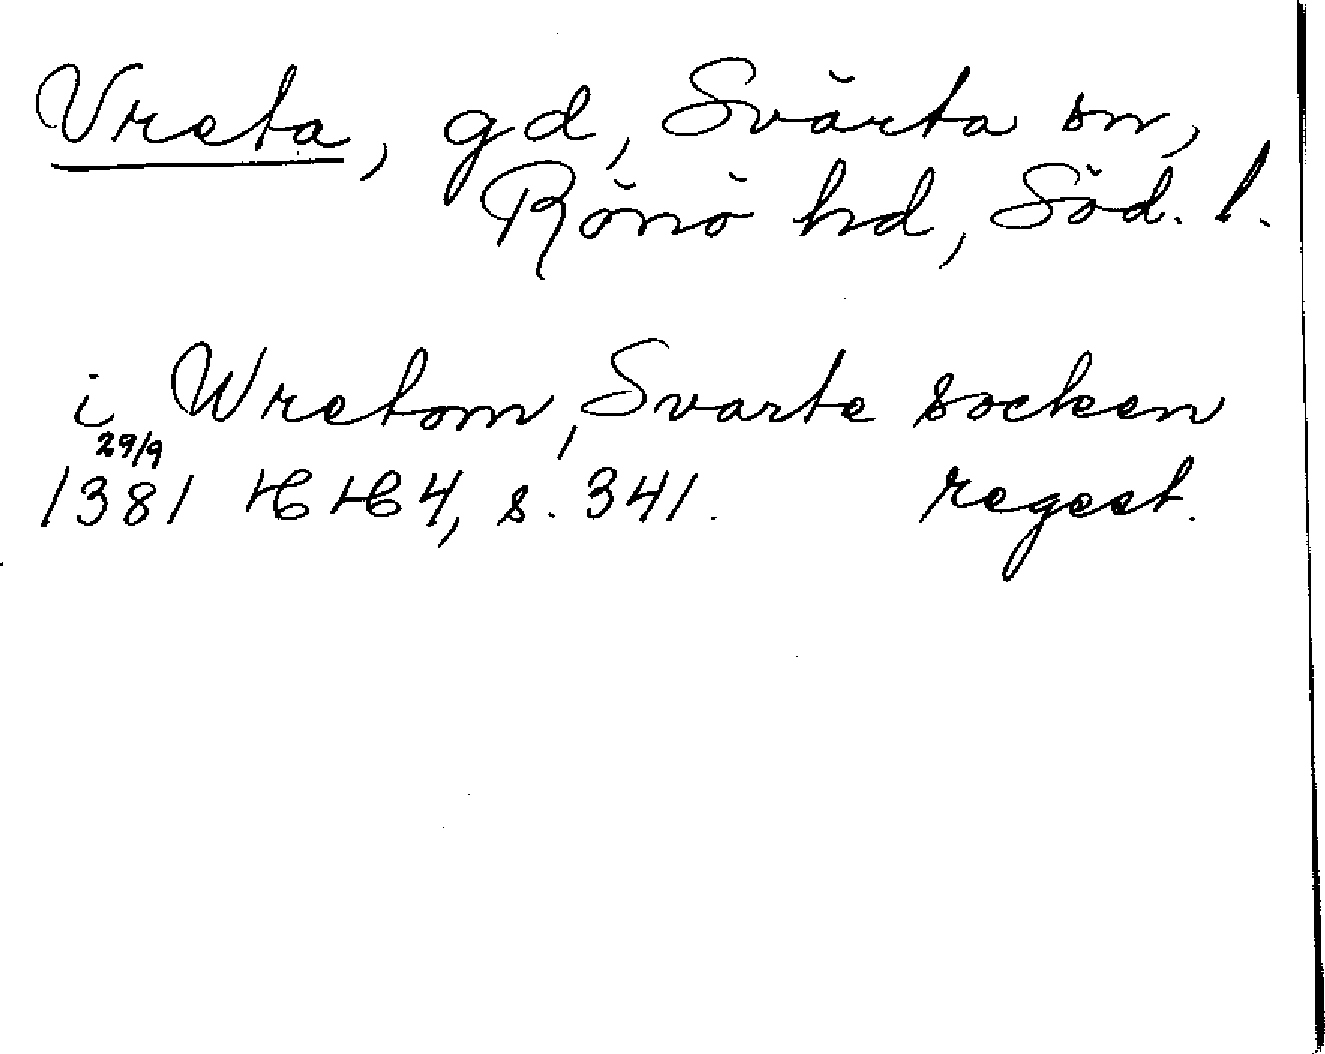 Vreta, gd, Svärta sn,
Rönö hd, Söd. l.
i Wretom, Svarte socken
29/9
1381 HH 4, s. 341. regest.